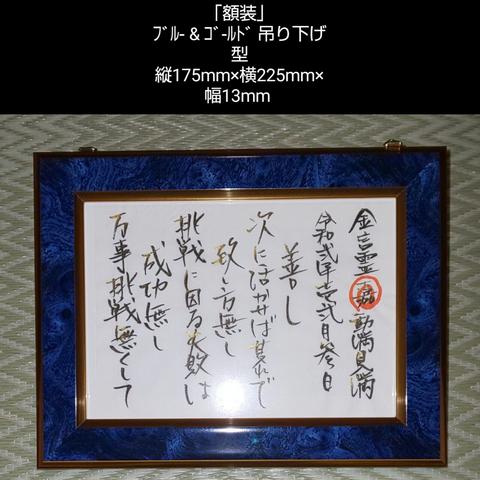 「額装」
ﾌﾞﾙｰ&ｺﾞｰﾙﾄﾞ吊り下げ
型
縦175mm×横225mm×
幅13mm
万事挑戦無くして
成功無し
挑戦に因る失敗は
致し方無し
次に活かせば其れで
善し
令和弐年壱弐月参日
金言霊